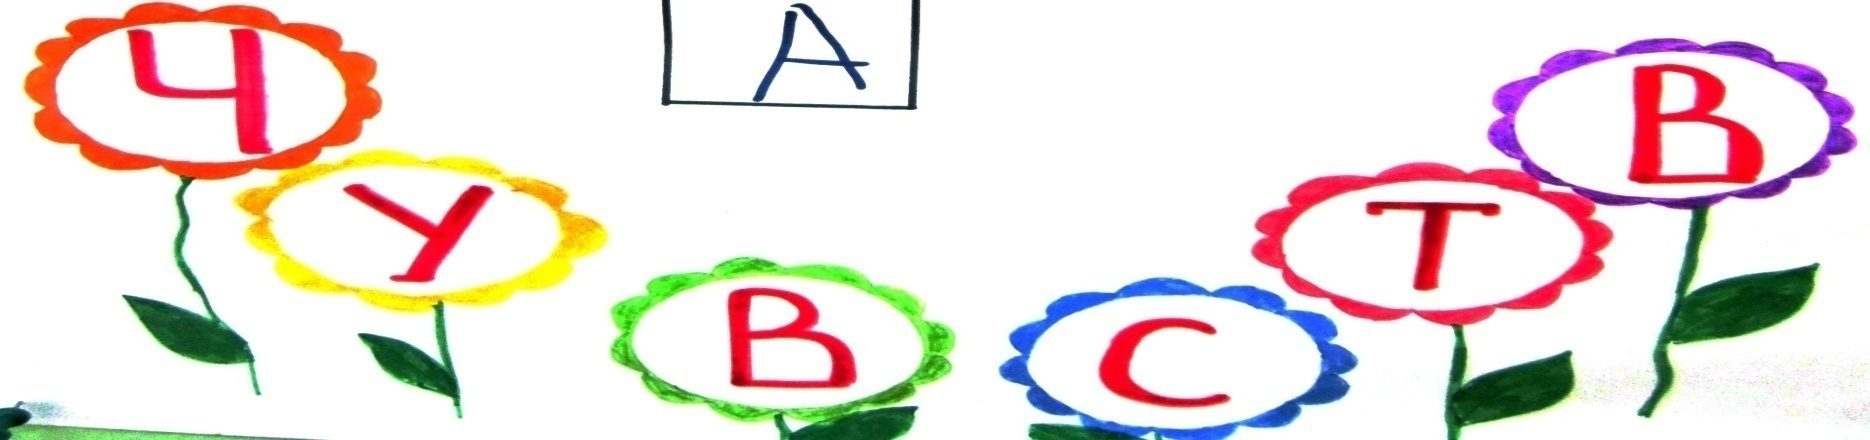 А
ЧУВСТВ